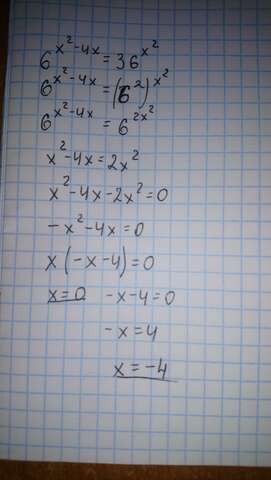 6^(x²-4x) = 36^(x²)
6^(x²-4x) = (6²)^(x²)
6^(x²-4x) = 6^(2x²)
x²-4x=2x²
x²-4x-2x²=0
-x²-4x=0
x(-x-4)=0
x=0 -x-4=0
-x=4
x=-4